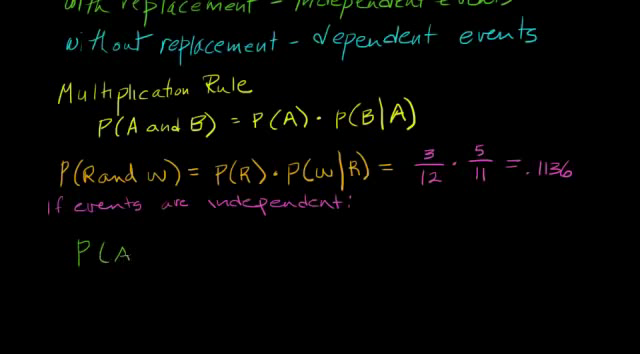 with replacement - independent events
without replacement - dependent events
Multiplication Rule
P(A and B) = P(A) · P(B|A)
P(R and W) = P(R) · P(W|R) = 3/12 · 5/11 = .1136
If events are independent:
P(A